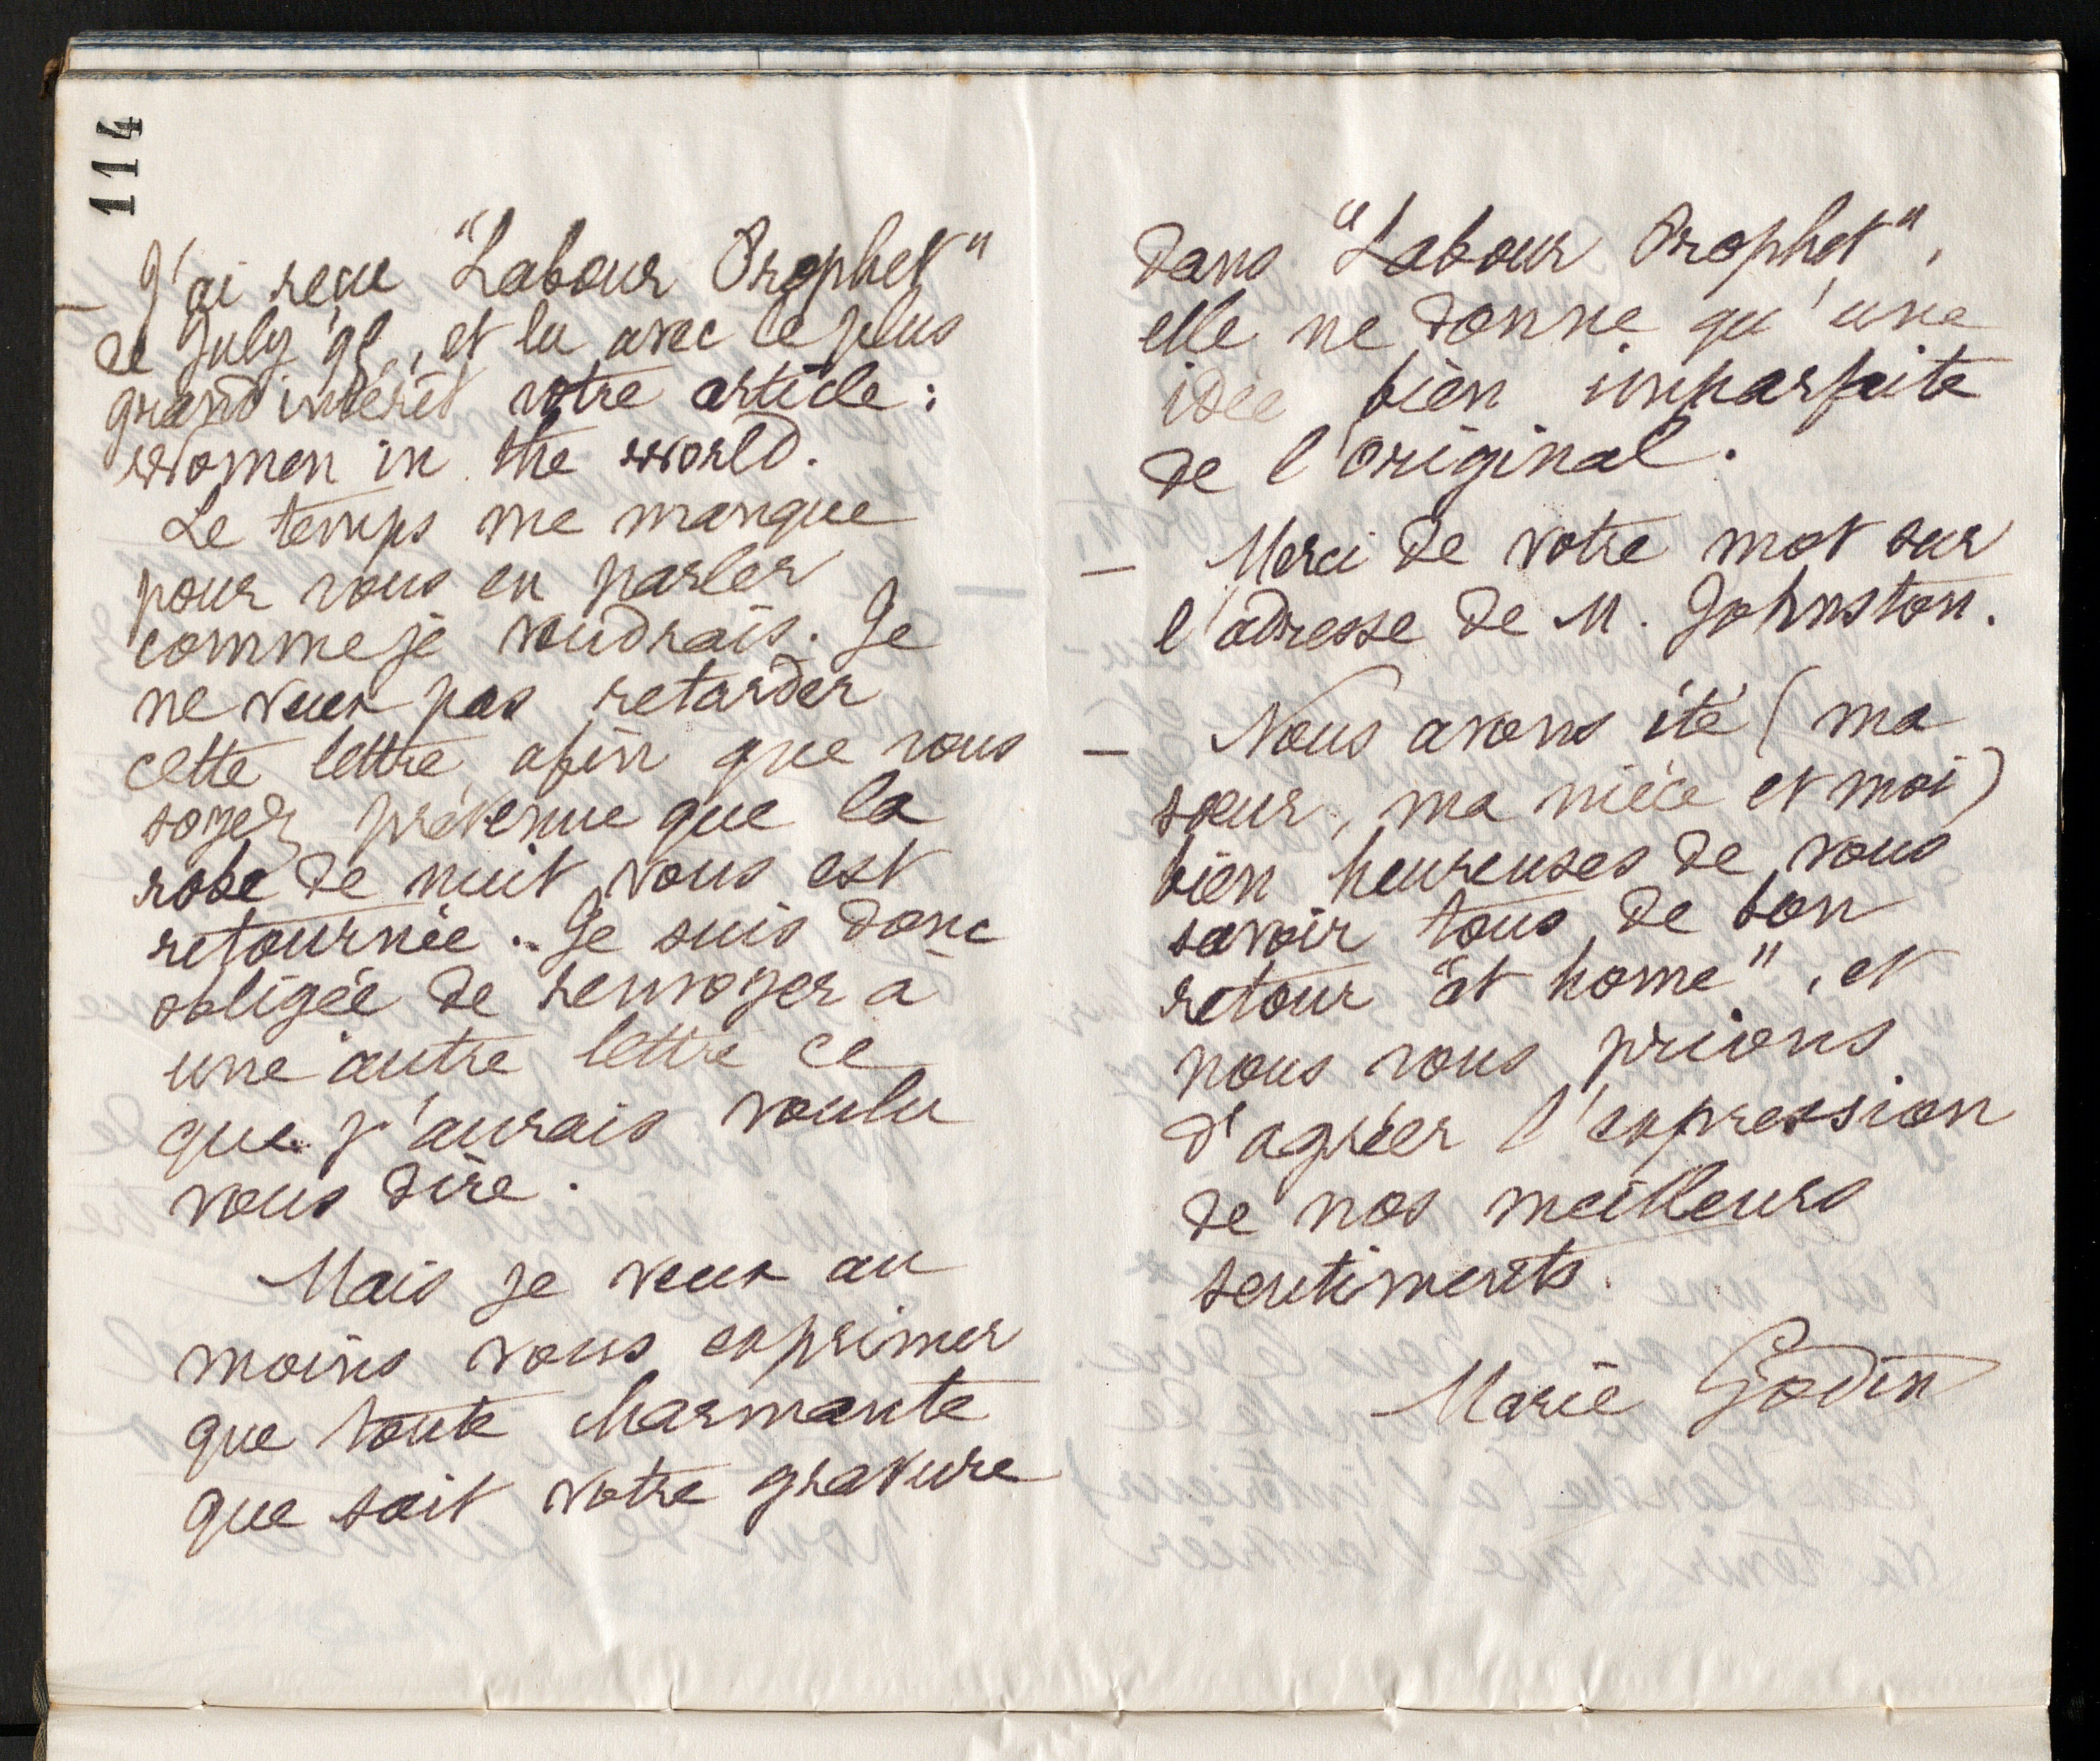 114
— J'ai reçu "Labour Prophet"
de July 98, et lu avec le plus
grand intérêt votre article :
Women in the world.
Le temps me manque
pour vous en parler
comme je voudrais. Je
ne veux pas retarder
cette lettre afin que vous
soyez prévenue que la
robe de nuit vous est
retournée. Je suis donc
obligée de renvoyer à
une autre lettre ce
que j'aurais voulu
vous dire.
Mais je veux au
moins vous exprimer
que toute charmante
que soit votre gravure
dans "Labour Prophet",
elle ne donne qu'une
idée bien imparfaite
de l'original.
— Merci de votre mot sur
l'adresse de M. Johnston.
— Nous avons été (ma
sœur, ma nièce et moi)
bien heureuses de vous
savoir tous de bon
retour "at home", et
nous vous prions
d'agréer l'expression
de nos meilleurs
sentiments.
Marie Godin